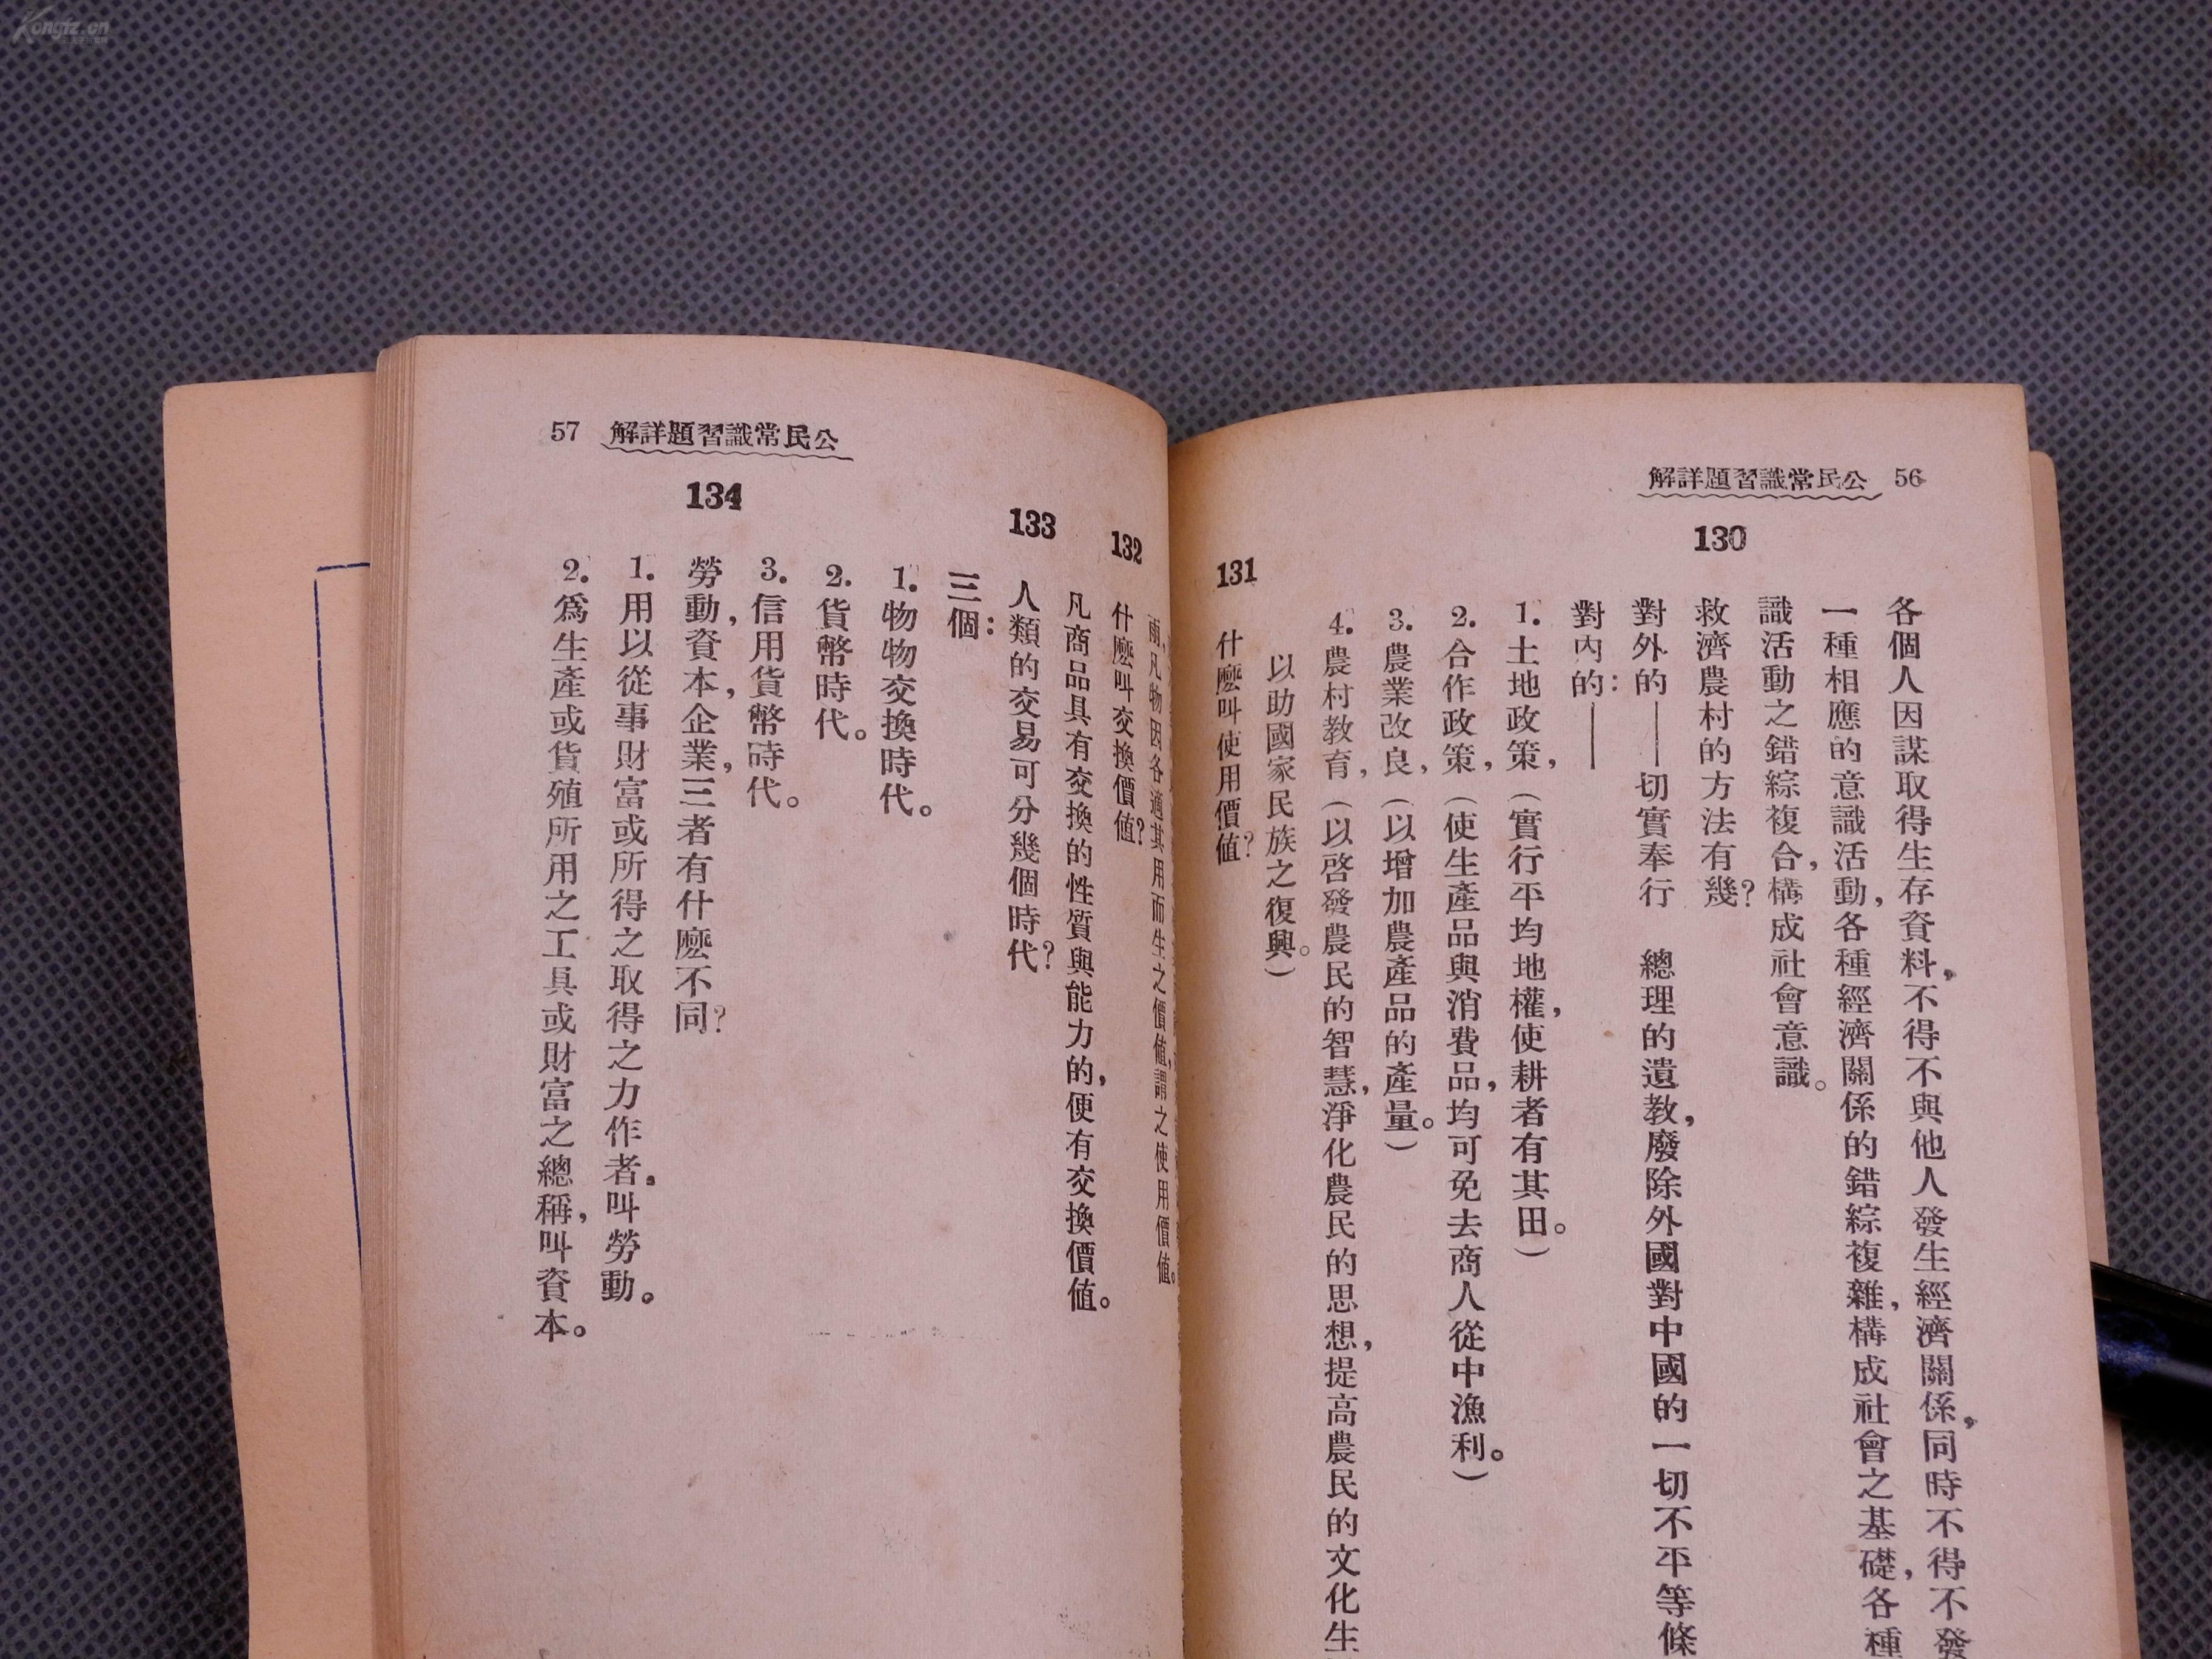 Kongfz.cn
公民常識習題詳解 56
各個人因謀取得生存資料，不得不與他人發生經濟關係，同時不得不發
一種相應的意識活動，各種經濟關係的錯綜複雜，構成社會之基礎，各種
識活動之錯綜複合，構成社會意識。
130 救濟農村的方法有幾？
對外的——切實奉行　總理的遺教，廢除外國對中國的一切不平等條
對內的：——
1. 土地政策，（實行平均地權，使耕者有其田。）
2. 合作政策，（使生產品與消費品，均可免去商人從中漁利。）
3. 農業改良，（以增加農產品的產量。）
4. 農村教育，（以啓發農民的智慧，淨化農民的思想，提高農民的文化生
以助國家民族之復興。）
131 什麼叫使用價值？
公民常識習題詳解 57
雨，凡物因各適其用而生之價值，謂之使用價值。
132 什麼叫交換價值？
凡商品具有交換的性質與能力的，便有交換價值。
133 人類的交易可分幾個時代？
三個：
1. 物物交換時代。
2. 貨幣時代。
3. 信用貨幣時代。
134 勞動，資本，企業，三者有什麼不同？
1. 用以從事財富或所得之取得之力作者。叫勞動。
2. 爲生產或貨殖所用之工具或財富之總稱，叫資本。